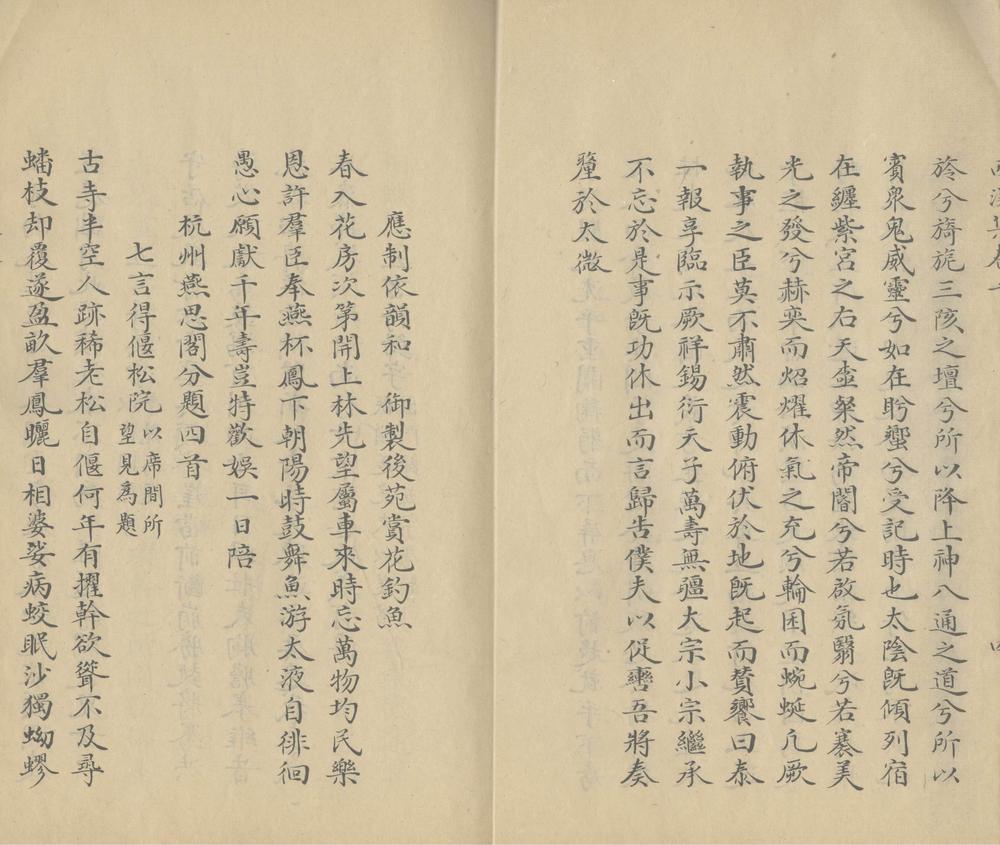 旍兮旖旎三陔之壇兮所以降上神八通之道兮所以
賓衆鬼威靈兮如在肸蠁兮受記時也太陰旣傾列宿
在纏紫宮之右天壼粲然帝閽兮若啟氛翳兮若褰美
光之發兮赫奕而炤燿休氣之充兮輪囷而蜿蜒凢厥
執事之臣莫不肅然震動俯伏於地旣起而贊饗曰泰
一報享臨示厥祥錫衍天子萬壽無疆大宗小宗繼承
不忘於是事旣功休出而言歸告僕夫以促轡吾將奏
釐於太微
應制依韻和 御製後苑賞花釣魚
春入花房次第開上林先望屬車來時忘萬物均民樂
恩許羣臣奉燕杯鳳下朝陽時鼓舞魚游太液自徘徊
愚心願獻千年壽豈特歡娱一日陪
杭州燕思閣分題四首
七言得偃松院以席間所望見為題
古寺半空人跡稀老松自偃何年有擢幹欲聳不及尋
蟠枝却覆遂盈畝羣鳳曬日相婆娑病蛟眠沙獨蚴蟉